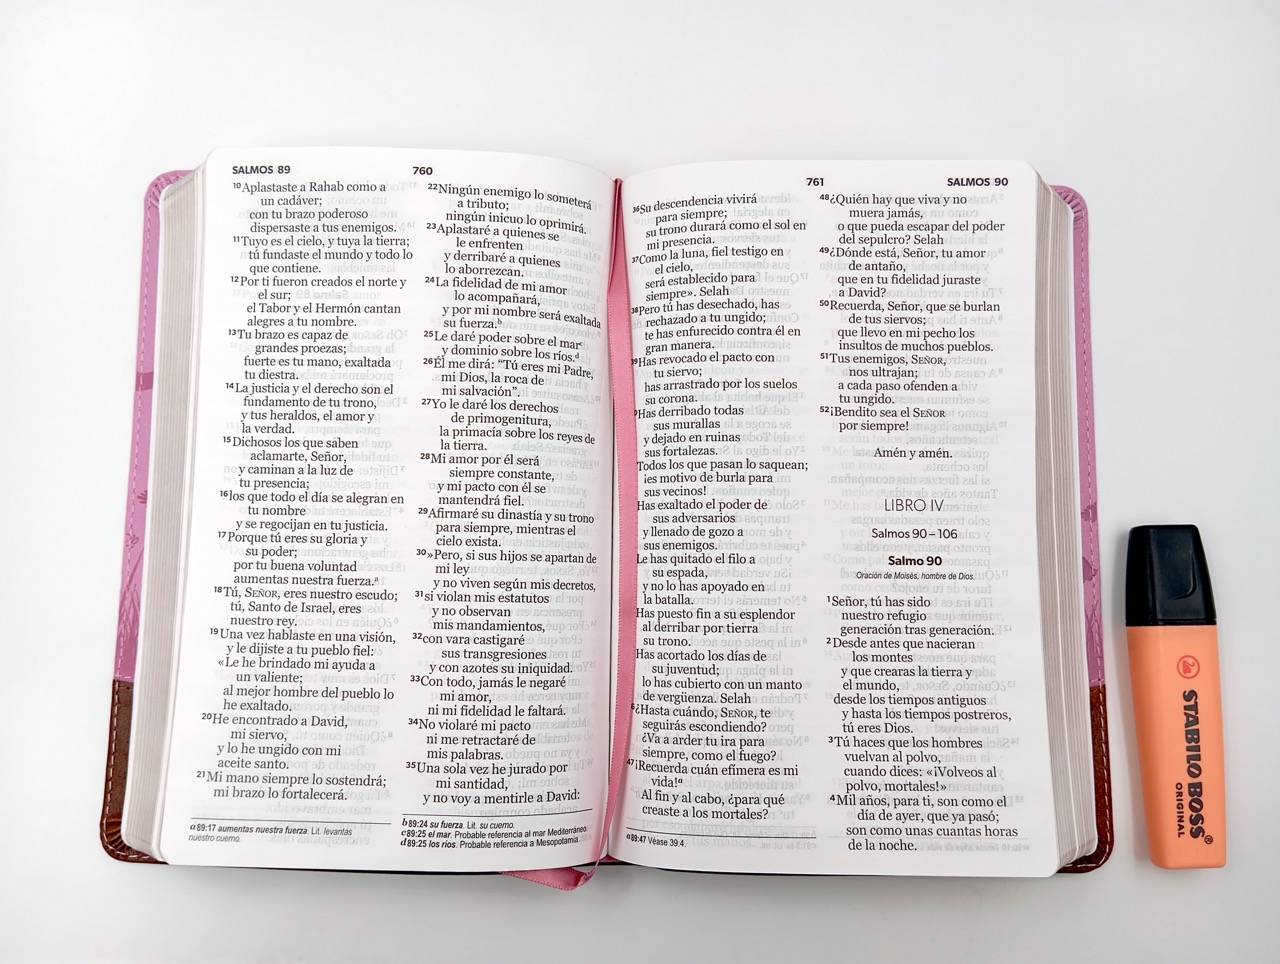 SALMOS 89
760
10Aplastaste a Rahab como a
un cadáver;
con tu brazo poderoso
dispersaste a tus enemigos.
11Tuyo es el cielo, y tuya la tierra;
tú fundaste el mundo y todo lo
que contiene.
12Por ti fueron creados el norte y
el sur;
el Tabor y el Hermón cantan
alegres a tu nombre.
13Tu brazo es capaz de
grandes proezas;
fuerte es tu mano, exaltada
tu diestra.
14La justicia y el derecho son el
fundamento de tu trono,
y tus heraldos, el amor y
la verdad.
15Dichosos los que saben
aclamarte, Señor,
y caminan a la luz de
tu presencia;
16los que todo el día se alegran en
tu nombre
y se regocijan en tu justicia.
17Porque tú eres su gloria y
su poder;
por tu buena voluntad
aumentas nuestra fuerza.a
18Tú, SEÑOR, eres nuestro escudo;
tú, Santo de Israel, eres
nuestro rey.
19Una vez hablaste en una visión,
y le dijiste a tu pueblo fiel:
«Le he brindado mi ayuda a
un valiente;
al mejor hombre del pueblo lo
he exaltado.
20He encontrado a David,
mi siervo,
y lo he ungido con mi
aceite santo.
21Mi mano siempre lo sostendrá;
mi brazo lo fortalecerá.
a 89:17 aumentas nuestra fuerza. Lit. levantas
nuestro cuerno.
22Ningún enemigo lo someterá
a tributo;
ningún inicuo lo oprimirá.
23Aplastaré a quienes se
le enfrenten
y derribaré a quienes
lo aborrezcan.
24La fidelidad de mi amor
lo acompañará,
y por mi nombre será exaltada
su fuerza.b
25Le daré poder sobre el marc
y dominio sobre los ríos.d
26Él me dirá: “Tú eres mi Padre,
mi Dios, la roca de
mi salvación”.
27Yo le daré los derechos
de primogenitura,
la primacía sobre los reyes de
la tierra.
28Mi amor por él será
siempre constante,
y mi pacto con él se
mantendrá fiel.
29Afirmaré su dinastía y su trono
para siempre, mientras el
cielo exista.
30»Pero, si sus hijos se apartan de
mi ley
y no viven según mis decretos,
31si violan mis estatutos
y no observan
mis mandamientos,
32con vara castigaré
sus transgresiones
y con azotes su iniquidad.
33Con todo, jamás le negaré
mi amor,
ni mi fidelidad le faltará.
34No violaré mi pacto
ni me retractaré de
mis palabras.
35Una sola vez he jurado por
mi santidad,
y no voy a mentirle a David:
b 89:24 su fuerza. Lit. su cuerno.
c 89:25 el mar. Probable referencia al mar Mediterráneo.
d 89:25 los ríos. Probable referencia a Mesopotamia.
761
SALMOS 90
36Su descendencia vivirá
para siempre;
su trono durará como el sol en
mi presencia.
37Como la luna, fiel testigo en
el cielo,
será establecido para
siempre». Selah
38Pero tú has desechado, has
rechazado a tu ungido;
te has enfurecido contra él en
gran manera.
39Has revocado el pacto con
tu siervo;
has arrastrado por los suelos
su corona.
Has derribado todas
sus murallas
y dejado en ruinas
sus fortalezas.
Todos los que pasan lo saquean;
¡es motivo de burla para
sus vecinos!
Has exaltado el poder de
sus adversarios
y llenado de gozo a
sus enemigos.
Le has quitado el filo a
su espada,
y no lo has apoyado en
la batalla.
Has puesto fin a su esplendor
al derribar por tierra
su trono.
Has acortado los días de
su juventud;
lo has cubierto con un manto
de vergüenza. Selah
¿Hasta cuándo, SEÑOR, te
seguirás escondiendo?
¿Va a arder tu ira para
siempre, como el fuego?
47¡Recuerda cuán efímera es mi
vida!a
Al fin y al cabo, ¿para qué
creaste a los mortales?
a 89:47 Véase 39:4.
48¿Quién hay que viva y no
muera jamás,
o que pueda escapar del poder
del sepulcro? Selah
49¿Dónde está, Señor, tu amor
de antaño,
que en tu fidelidad juraste
a David?
50Recuerda, Señor, que se burlan
de tus siervos;
que llevo en mi pecho los
insultos de muchos pueblos.
51Tus enemigos, SEÑOR,
nos ultrajan;
a cada paso ofenden a
tu ungido.
52¡Bendito sea el SEÑOR
por siempre!
Amén y amén.
LIBRO IV
Salmos 90–106
Salmo 90
Oración de Moisés, hombre de Dios.
1Señor, tú has sido
nuestro refugio
generación tras generación.
2Desde antes que nacieran
los montes
y que crearas la tierra y
el mundo,
desde los tiempos antiguos
y hasta los tiempos postreros,
tú eres Dios.
3Tú haces que los hombres
vuelvan al polvo,
cuando dices: «¡Volveos al
polvo, mortales!»
4Mil años, para ti, son como el
día de ayer, que ya pasó;
son como unas cuantas horas
de la noche.
STABILO BOSS®
ORIGINAL